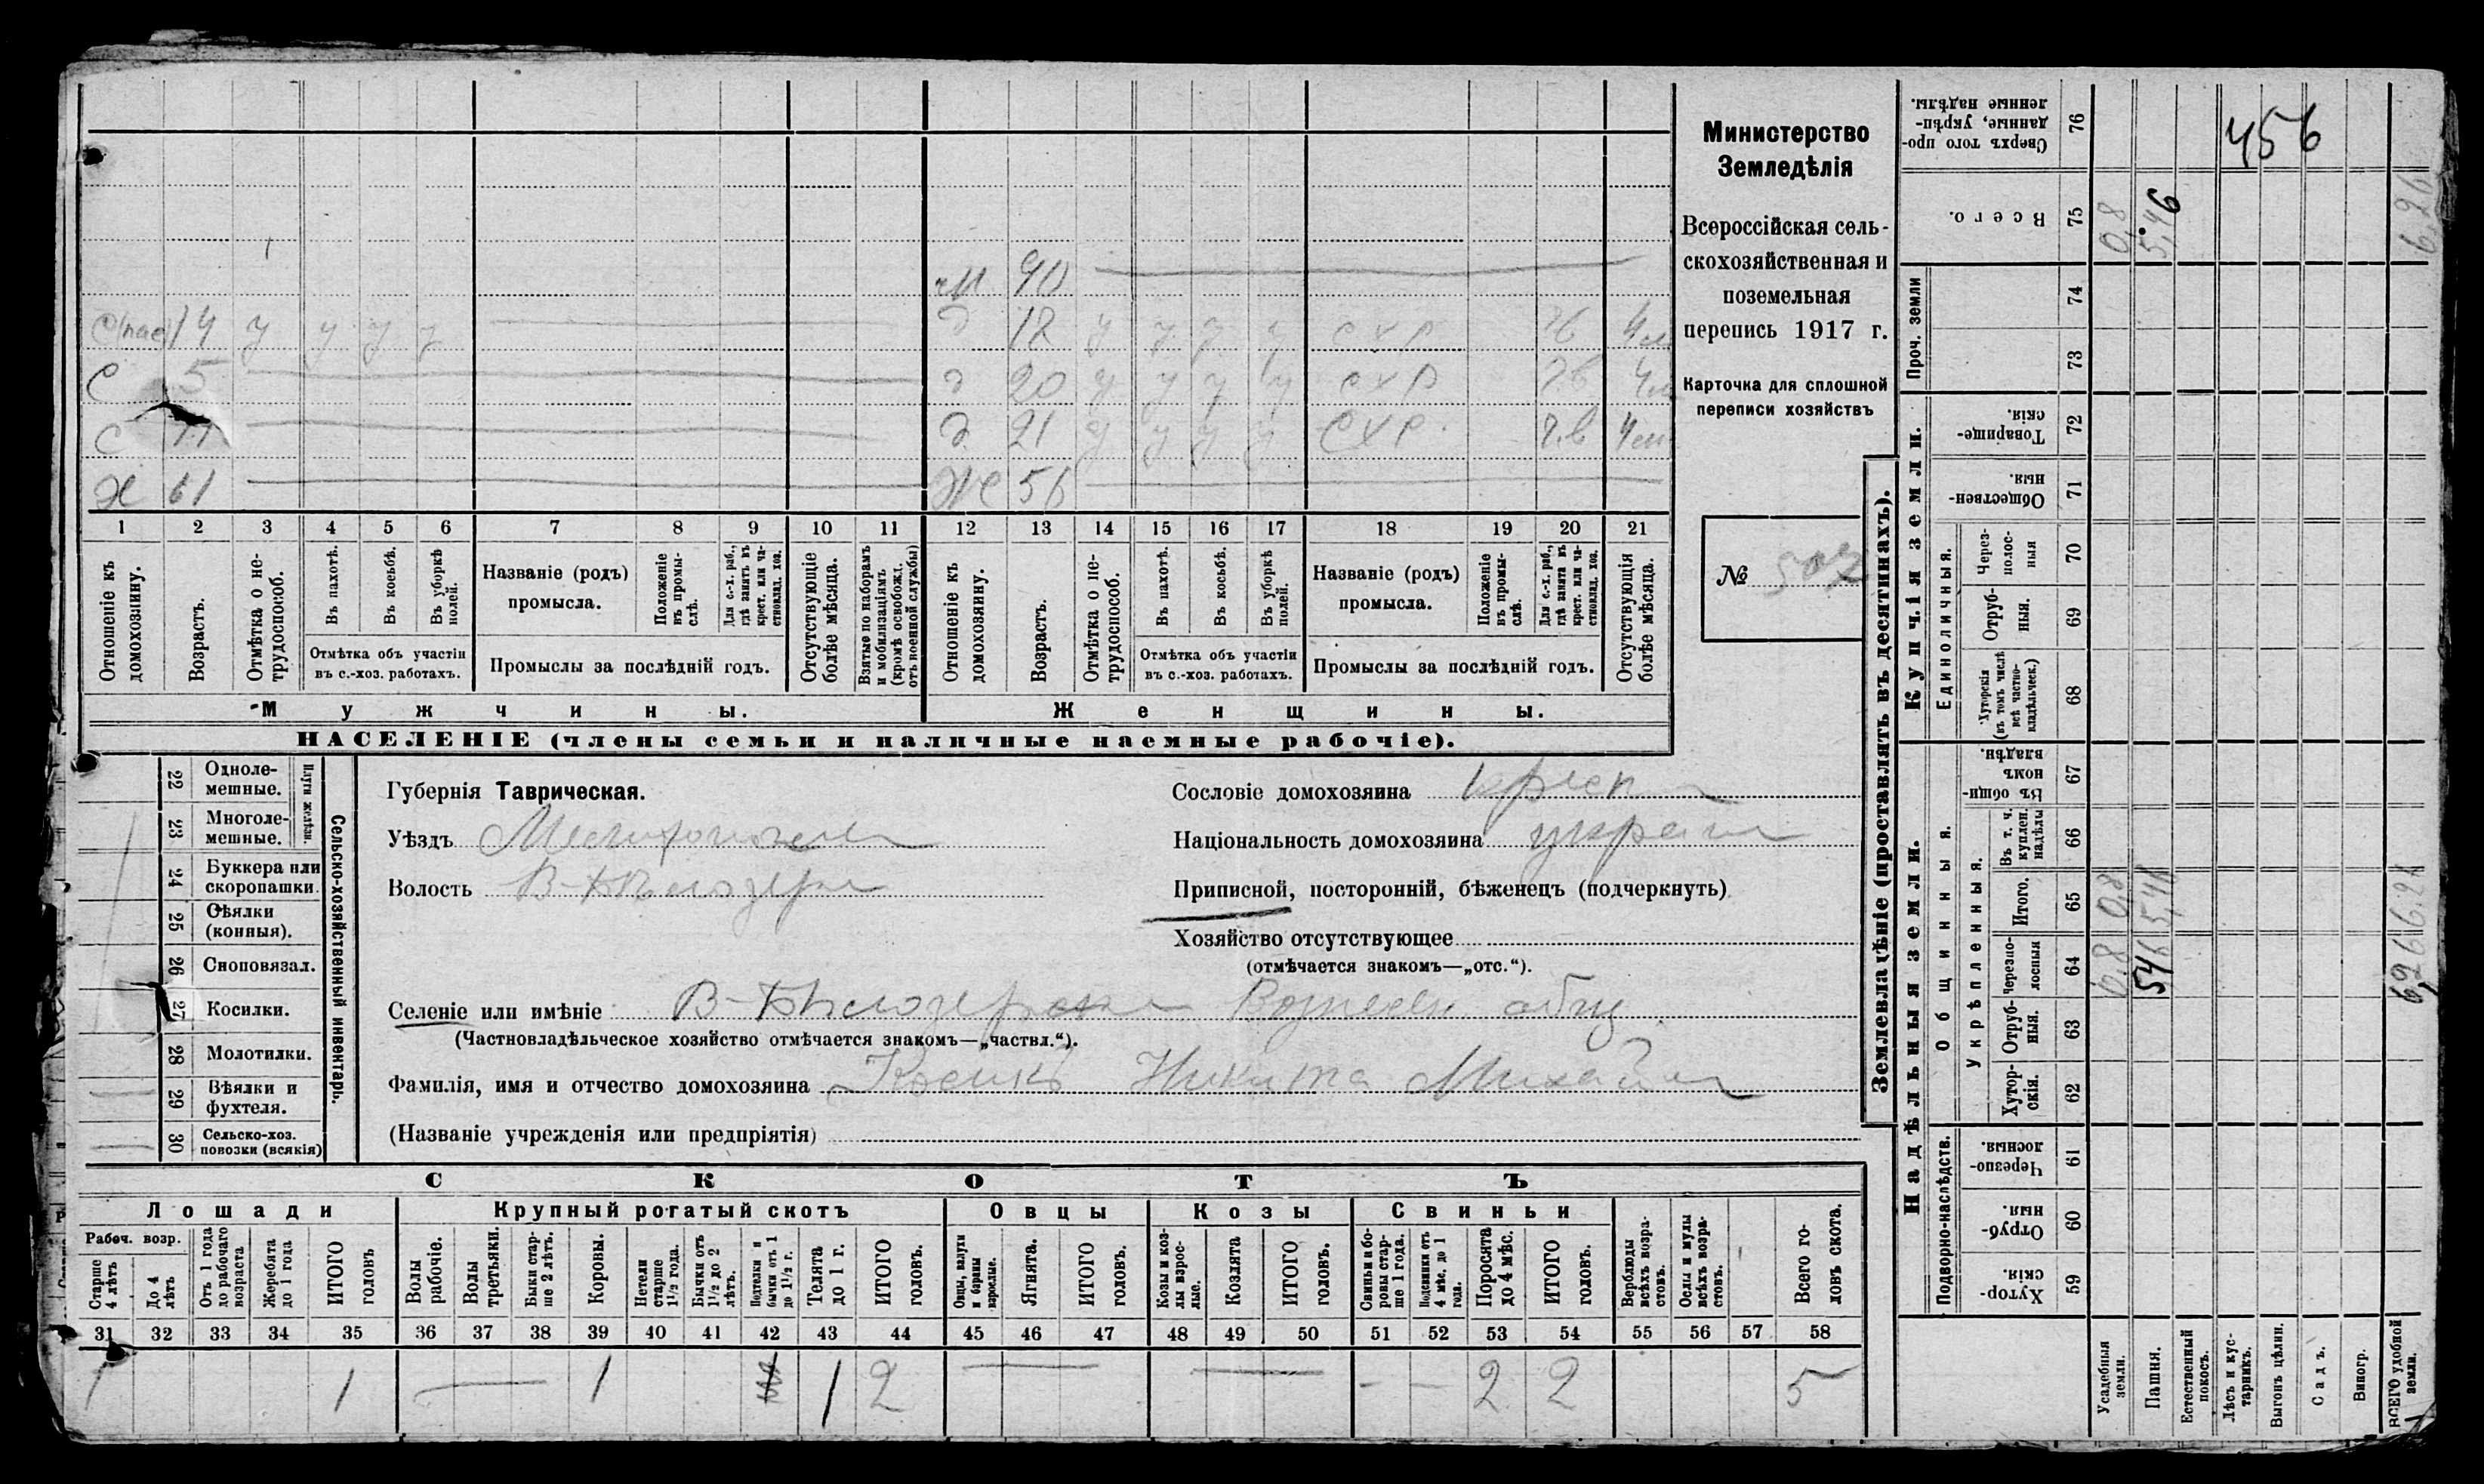 м 90
с(пас) 14 у у у у д 12 у у у у схр чв 4м
с 5 д 20 у у у у схр чв 4м
с 11 д 21 у у у у схр. ч.в 4м
Х 61 Ж 56
1 2 3 4 5 6 7 8 9 10 11 12 13 14 15 16 17 18 19 20 21
Отношеніе къ домохозяину.
Возрастъ.
Отмѣтка о не-трудоспособ.
Въ пахотѣ.
Въ косьбѣ.
Въ уборкѣ полей.
Отмѣтка объ участіи въ с.-хоз. работахъ.
Названіе (родъ) промысла.
Положеніе въ промы-слѣ.
Для с.-х. раб., гдѣ занятъ въ крест. или ча-стновлад. хоз.
Промыслы за послѣдній годъ.
Отсутствующіе болѣе мѣсяца.
Взятые по наборамъ и мобилизаціямъ (кромѣ освобожд. отъ военной службы)
Отношеніе къ домохозяину.
Возрастъ.
Отмѣтка о не-трудоспособ.
Въ пахотѣ.
Въ косьбѣ.
Въ уборкѣ полей.
Отмѣтка объ участіи въ с.-хоз. работахъ.
Названіе (родъ) промысла.
Положеніе въ промы-слѣ.
Для с.-х. раб., гдѣ занята въ крест. или ча-стновлад. хоз.
Промыслы за послѣдній годъ.
Отсутствующія болѣе мѣсяца.
Мужчины. Женщины.
НАСЕЛЕНІЕ (члены семьи и наличные наемные рабочіе).
Министерство
Земледѣлія
Всероссійская сель-
скохозяйственная и
поземельная
перепись 1917 г.
Карточка для сплошной
переписи хозяйствъ
№ 507
22 Одноле-мешные.
23 Многоле-мешные.
Плуги желѣзн.
24 Буккера или скоропашки.
25 Сѣялки (конныя).
26 Сноповязал.
27 Косилки.
28 Молотилки.
29 Вѣялки и фухтеля.
30 Сельско-хоз. повозки (всякія)
Сельско-хозяйственный инвентарь.
Губернія Таврическая.
Уѣздъ Мелитопольск
Волость В-Бѣлозерк
Сословіе домохозяина крест
Національность домохозяина украин
Приписной, посторонній, бѣженецъ (подчеркнуть)
Хозяйство отсутствующее
(отмѣчается знакомъ—„отс.“).
Селеніе или имѣніе В-Бѣлозерка Вознесен общ
(Частновладѣльческое хозяйство отмѣчается знакомъ—„частвл.“).
Фамилія, имя и отчество домохозяина Никита Михайл
(Названіе учрежденія или предпріятія)
СКОТЪ
Лошади Крупный рогатый скотъ Овцы Козы Свиньи
Рабоч. возр.
Старше 4 лѣтъ
До 4 лѣтъ
Отъ 1 года до рабочаго возраста
Жеребята до 1 года
ИТОГО головъ
Волы рабочіе.
Волы третьяки.
Быки стар-ше 2 лѣтъ.
Коровы.
Нетели старше 1½ года.
Бычки отъ 1½ до 2 лѣтъ.
Подтелки и бычки отъ 1 до 1½ г.
Телята до 1 г.
ИТОГО головъ.
Овцы, валухи и бараны взрослые.
Ягнята.
ИТОГО головъ.
Козы и коз-лы взрос-лые.
Козлята
ИТОГО головъ.
Свиньи и бо-ровы стар-ше 1 года.
Подсвинки отъ 4 мѣс. до 1 года.
Поросята до 4 мѣс.
ИТОГО головъ.
Верблюды всѣхъ возра-стовъ.
Ослы и мулы всѣхъ возра-стовъ.
Всего го-ловъ скота.
31 32 33 34 35 36 37 38 39 40 41 42 43 44 45 46 47 48 49 50 51 52 53 54 55 56 57 58
1 1 1 1 2 2 2 5
Землевладѣніе (проставлять въ десятинахъ).
Надѣльныя земли. Купчія земли. Проч. земли
Подворно-наслѣдств. Общинныя. Единоличныя.
Укрѣпленныя.
Сверхъ того про-данные, укрѣп-ленные надѣлы. 76 456
Всего. 75 0,8 5,46 6,26
74
73
Товарище-скія. 72
Обществен-ныя. 71
Через-полос-ныя 70
Отруб-ныя. 69
Хуторскія (въ томъ числѣ всѣ частно-владѣльческ.) 68
Въ общи-номъ владѣн. 67
Въ т. ч. куплен. надѣлы 66
Итого. 65 0,8 5,46 6,26
Черезпо-лосныя 64 0,8 5,46 6,26
Отруб-ныя. 63
Хутор-скія. 62
Черезпо-лосныя. 61
Отруб-ныя. 60
Хутор-скія. 59
Усадебныя земли.
Пашня.
Естественный покосъ.
Лѣсъ и кус-тарникъ.
Выгонъ цѣлин.
Садъ.
Виногр.
ВСЕГО удобной земли.